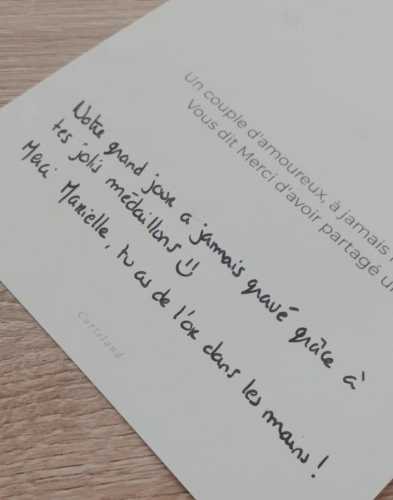 Un couple d'amoureux, à jamais
Vous dit Merci d'avoir partagé
Notre grand jour a jamais gravé grâce à
tes jolis médaillons
Merci Marielle, tu as de l'or dans les mains !
Cartland